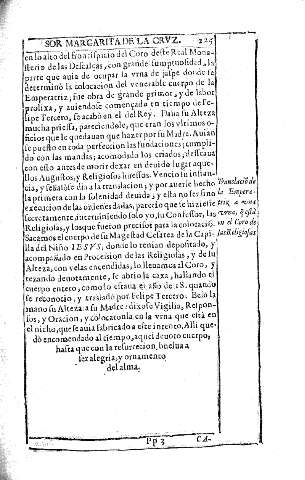 SOR MARGARITA DE LA CRVZ. 225
en lo alto del frontispicio del Coro deste Real Mona-
sterio de las Descalças, con grande sumptuosidad, la
parte que auia de ocupar la vrna de jaspe donde se
determinò la colocacion del venerable cuerpo de la
Emperatriz, fue obra de grande primor, y de labor
prolixa, y auiendose començado en tiempo de Fe-
lipe Tercero, se acabò en el del Rey. Daua su Alteza
mucha priessa, pareciendole, que eran los vltimos o-
ficios que le quedauan que hazer por su Madre. Auian
se puesto en toda perfeccion las fundaciones; cumpli-
do con las mandas; acomodado los criados, desseaua
con esto antes de morir dexar en deuido lugar aque-
llos Augustos, y Religiosos huessos. Venció su instan-
cia, y señalòse dia a la translacion, y por auerse hecho
la primera con la solenidad deuida; y ella no ser sino
execucion de las ordenes dadas, pareciò que se hiziesse
secretamente interuiniendo solo yo, su Confessor, las
Religiosas, y los que fueron precisos para la colocaciõ.
Sacamos el cuerpo de su Magestad Cesarea de la Capi-
lla del Niño IESVS, donde lo tenian depositado, y
acompañado en Procession de las Religiosas, y de su
Alteza, con velas encendidas, lo lleuamos al Coro, y
rezando deuotamente, se abriò la caxa, hallando el
cuerpo entero, como lo estaua el año de 18. quando
se reconociò, y trasladò por Felipe Tercero. Besò la
mano su Alteza a su Madre: dixose Vigilia, Respon-
sos, y Oracion, y colocaronla en la vrna que està en
el nicho, que se auia fabricado a este intento. Alli que-
dò encomendado al tiempo, aquel deuoto cuerpo,
hasta que con la resurreccion, buelua a
ser alegria, y ornamento
del alma.
Translacion de
la Empera-
triz, a vna
vrna, q̃ està
en el Coro de
las Religiosas.
Pp 3 CA-